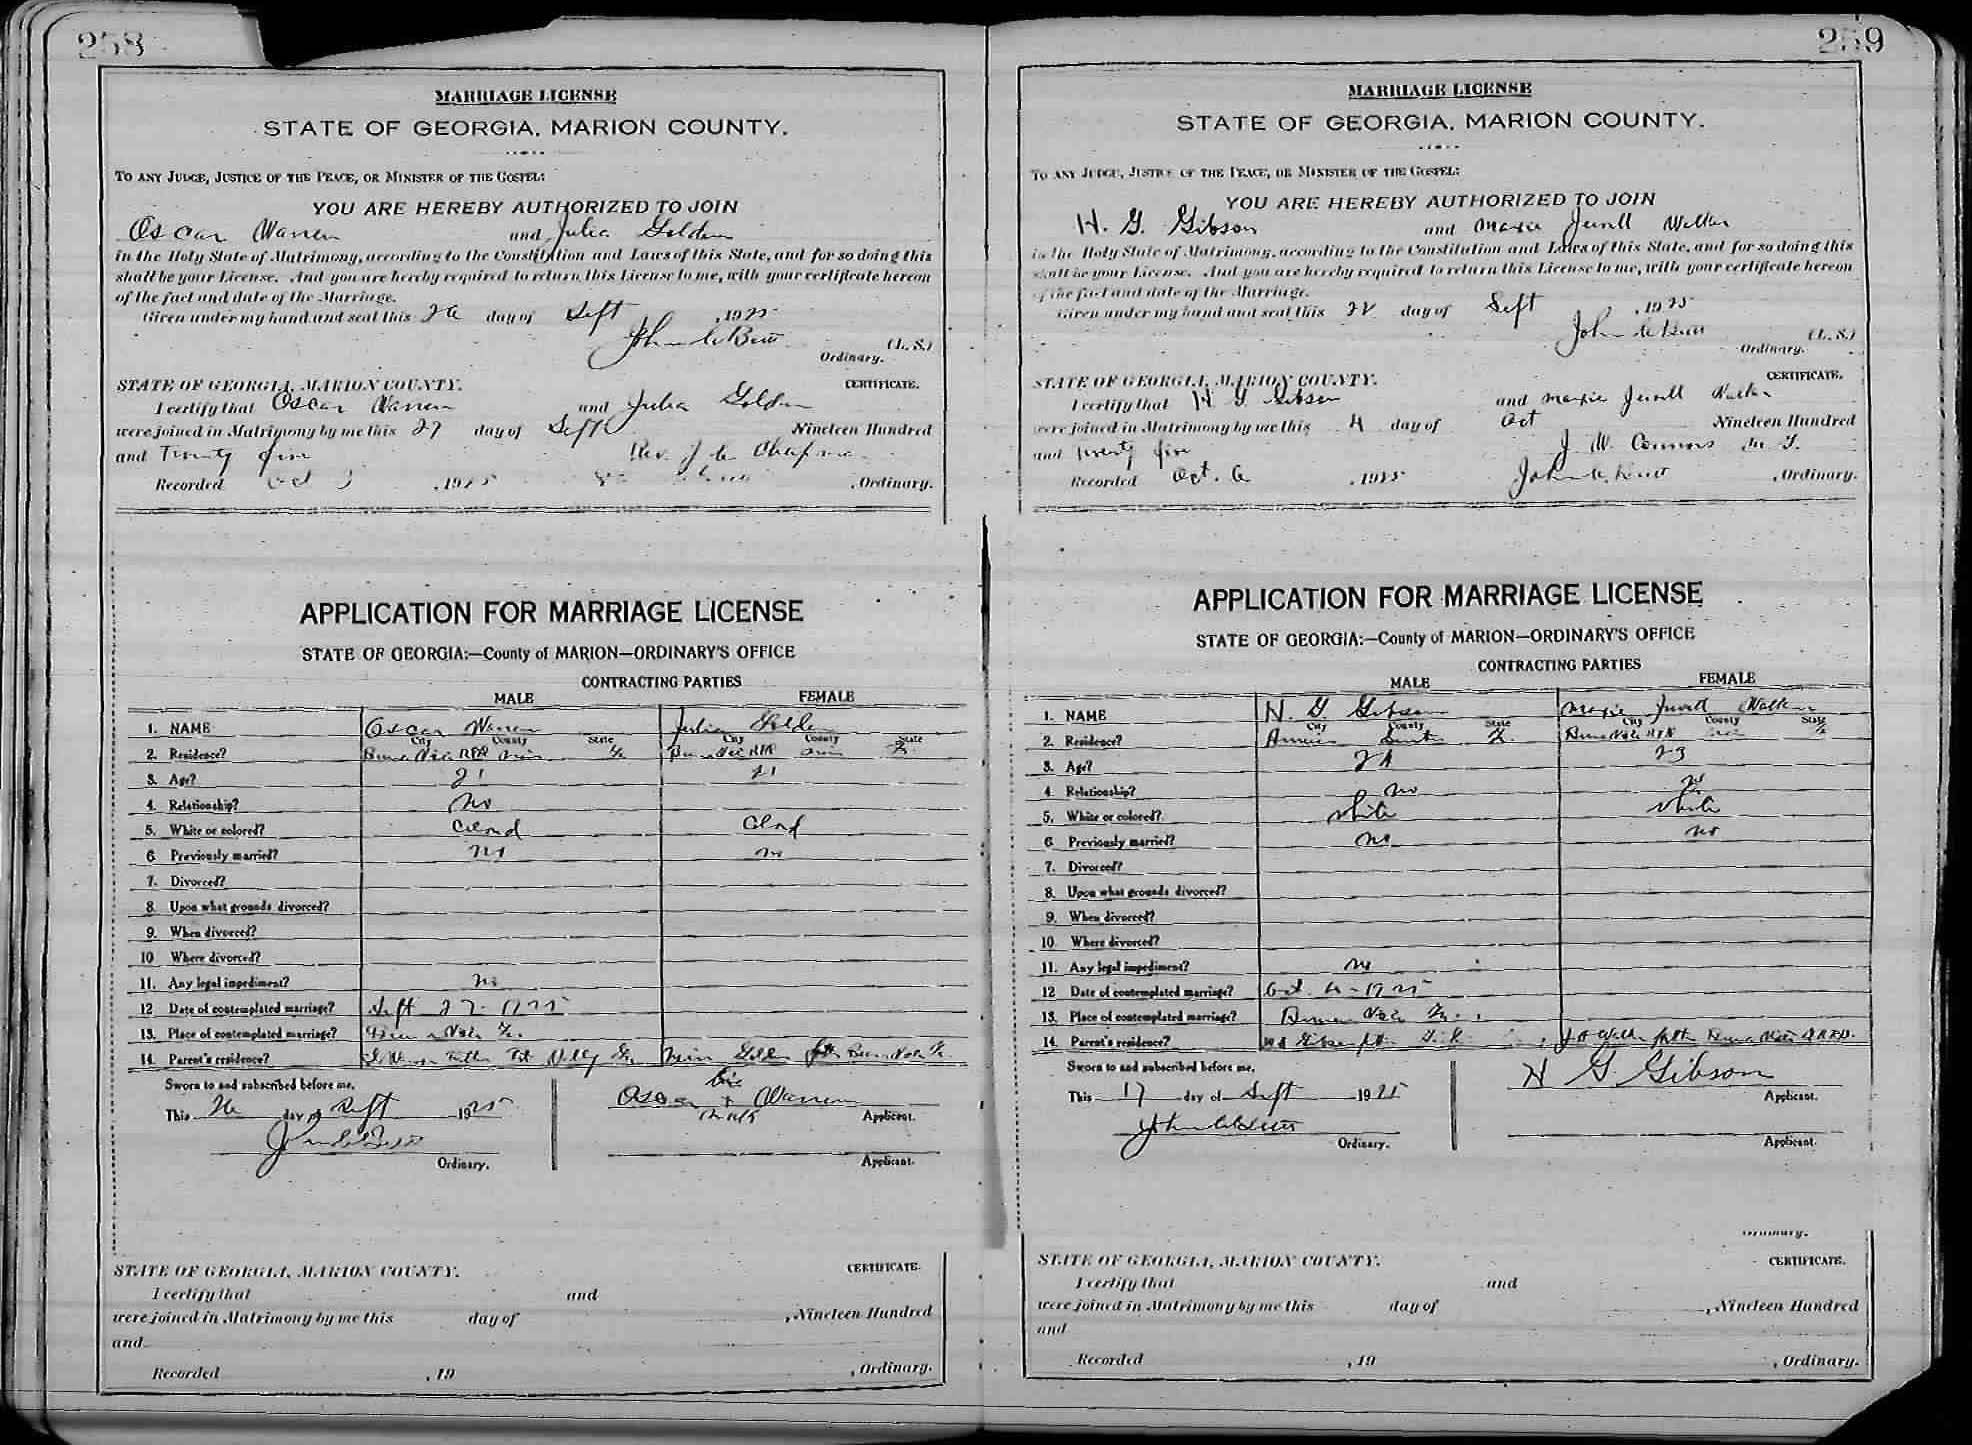 258
MARRIAGE LICENSE
STATE OF GEORGIA, MARION COUNTY.
TO ANY JUDGE, JUSTICE OF THE PEACE, OR MINISTER OF THE GOSPEL:
YOU ARE HEREBY AUTHORIZED TO JOIN
Oscar Warren and Julia Golden
in the Holy State of Matrimony, according to the Constitution and Laws of this State, and for so doing this
shall be your License. And you are hereby required to return this License to me, with your certificate hereon
of the fact and date of the Marriage.
Given under my hand and seal this 26 day of Sept , 1925
John C Butt (L. S.)
Ordinary.
STATE OF GEORGIA, MARION COUNTY. CERTIFICATE.
I certify that Oscar Warren and Julia Golden
were joined in Matrimony by me this 27 day of Sept Nineteen Hundred
and Twenty five Rev. J. C. Chapman
Recorded Oct , 1925 , Ordinary.
APPLICATION FOR MARRIAGE LICENSE
STATE OF GEORGIA:—County of MARION—ORDINARY'S OFFICE
CONTRACTING PARTIES
MALE FEMALE
1. NAME Oscar Warren Julia Golden
City County State City County State
2. Residence? Buena Vista RFD Ga Buena Vista RFD Ga
3. Age? 21 21
4. Relationship? no
5. White or colored? Colord Colord
6 Previously married? no no
7. Divorced?
8. Upon what grounds divorced?
9. When divorced?
10 Where divorced?
11. Any legal impediment? no
12 Date of contemplated marriage? Sept 27 - 1925
13. Place of contemplated marriage? Buena Vista Ga.
14. Parent's residence? Warren Father Ga Golden Buena Vista Ga
Sworn to and subscribed before me,
This 26 day of Sept 1925
his
Oscar x Warren
mark Applicant.
John C Butt
Ordinary. Applicant.
STATE OF GEORGIA, MARION COUNTY. CERTIFICATE.
I certify that and
were joined in Matrimony by me this day of , Nineteen Hundred
and
Recorded , 19 , Ordinary.
259
MARRIAGE LICENSE
STATE OF GEORGIA, MARION COUNTY.
TO ANY JUDGE, JUSTICE OF THE PEACE, OR MINISTER OF THE GOSPEL:
YOU ARE HEREBY AUTHORIZED TO JOIN
H. G. Gibson and Maxie Jewell Walker
in the Holy State of Matrimony, according to the Constitution and Laws of this State, and for so doing this
shall be your License. And you are hereby required to return this License to me, with your certificate hereon
of the fact and date of the Marriage.
Given under my hand and seal this 22 day of Sept , 1925
John C Butt (L. S.)
Ordinary.
STATE OF GEORGIA, MARION COUNTY. CERTIFICATE.
I certify that H. G. Gibson and Maxie Jewell Walker
were joined in Matrimony by me this 4 day of Oct Nineteen Hundred
and Twenty five J. W. Connors M. G.
Recorded Oct. 6 , 1925 John C. Butt , Ordinary.
APPLICATION FOR MARRIAGE LICENSE
STATE OF GEORGIA:—County of MARION—ORDINARY'S OFFICE
CONTRACTING PARTIES
MALE FEMALE
1. NAME H. G Gibson Maxie Jewell Walker
City County State City County State
2. Residence? Americus Sumter Ga. Buena Vista RFD Ga
3. Age? 24 23
4. Relationship? no
5. White or colored? White White
6 Previously married? no no
7. Divorced?
8. Upon what grounds divorced?
9. When divorced?
10 Where divorced?
11. Any legal impediment? no
12 Date of contemplated marriage? Oct. 4 - 1925
13. Place of contemplated marriage? Buena Vista Ga.
14. Parent's residence? Gibson father Walker father Buena Vista R.F.D.
Sworn to and subscribed before me,
This 17 day of Sept 1925
H G Gibson
Applicant.
John C Butt
Ordinary. Applicant.
Ordinary.
STATE OF GEORGIA, MARION COUNTY. CERTIFICATE.
I certify that and
were joined in Matrimony by me this day of , Nineteen Hundred
and
Recorded , 19 , Ordinary.